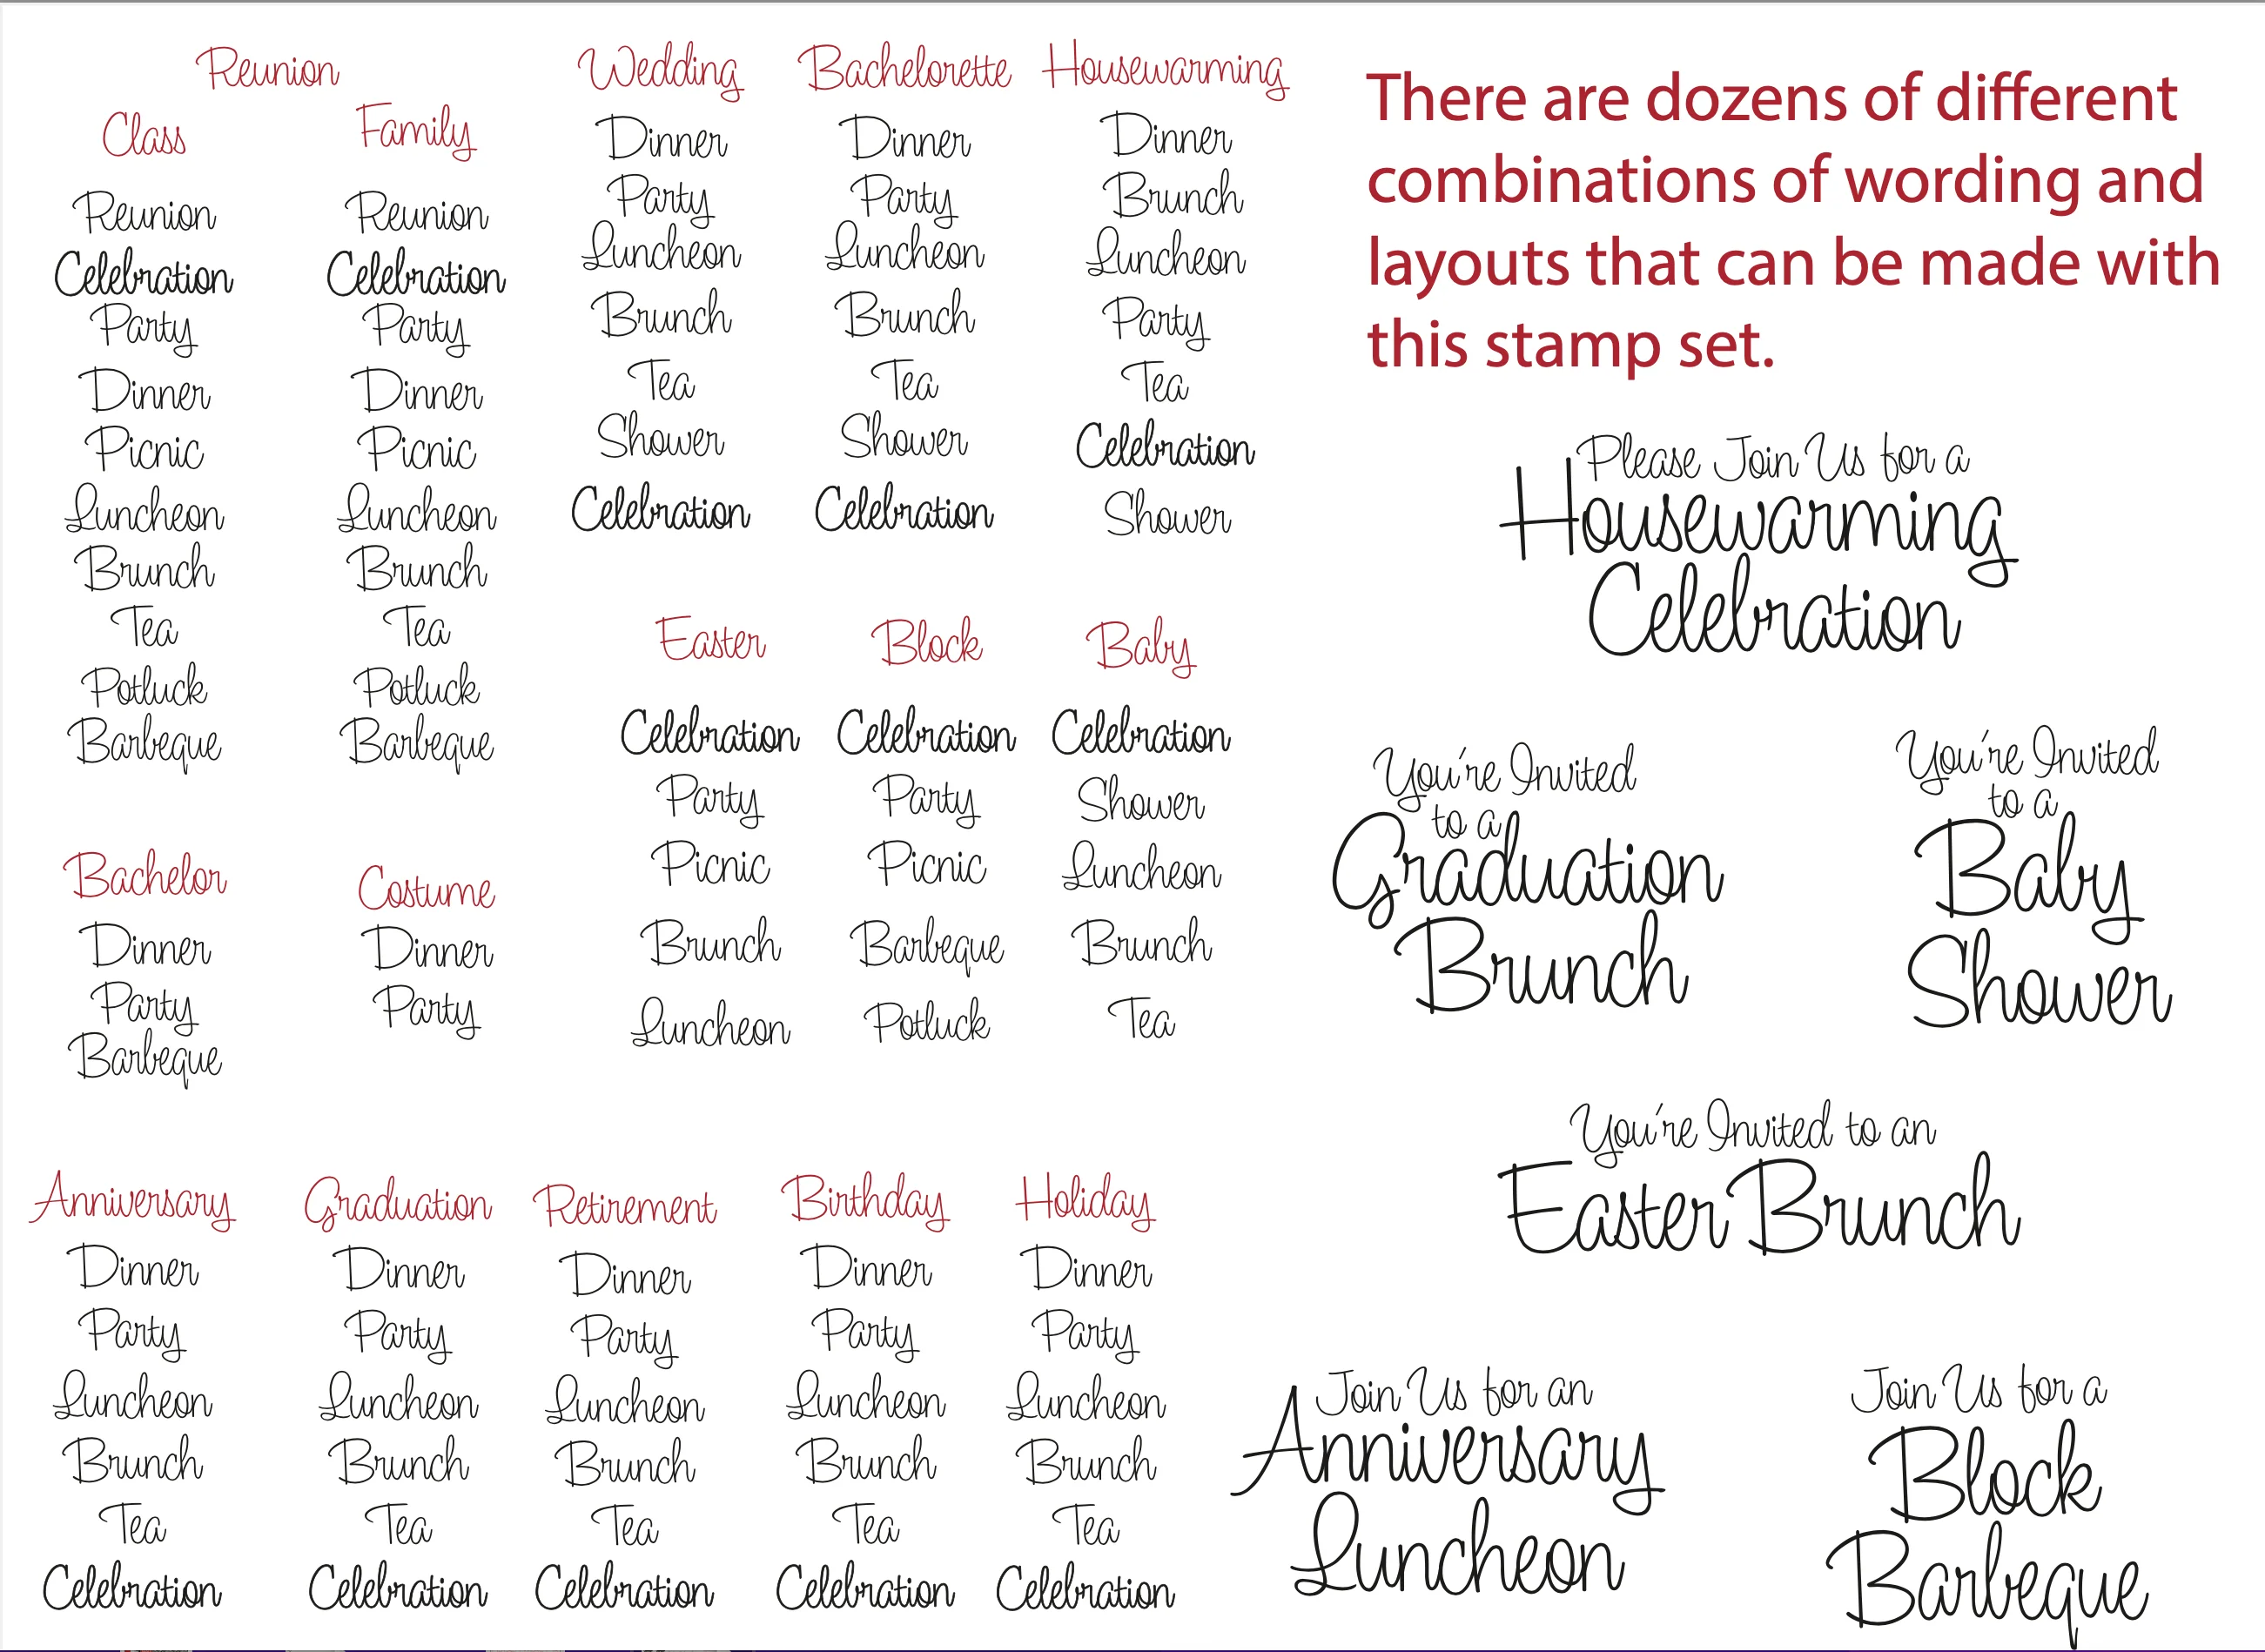 Reunion
Class
Reunion
Celebration
Party
Dinner
Picnic
Luncheon
Brunch
Tea
Potluck
Barbeque
Family
Reunion
Celebration
Party
Dinner
Picnic
Luncheon
Brunch
Tea
Potluck
Barbeque
Wedding
Dinner
Party
Luncheon
Brunch
Tea
Shower
Celebration
Bachelorette
Dinner
Party
Luncheon
Brunch
Tea
Shower
Celebration
Housewarming
Dinner
Brunch
Luncheon
Party
Tea
Celebration
Shower
Bachelor
Dinner
Party
Barbeque
Costume
Dinner
Party
Easter
Celebration
Party
Picnic
Brunch
Luncheon
Block
Celebration
Party
Picnic
Barbeque
Potluck
Baby
Celebration
Shower
Luncheon
Brunch
Tea
Anniversary
Dinner
Party
Luncheon
Brunch
Tea
Celebration
Graduation
Dinner
Party
Luncheon
Brunch
Tea
Celebration
Retirement
Dinner
Party
Luncheon
Brunch
Tea
Celebration
Birthday
Dinner
Party
Luncheon
Brunch
Tea
Celebration
Holiday
Dinner
Party
Luncheon
Brunch
Tea
Celebration
There are dozens of different
combinations of wording and
layouts that can be made with
this stamp set.
Please Join Us for a
Housewarming
Celebration
You're Invited
to a
Graduation
Brunch
You're Invited
to a
Baby
Shower
You're Invited to an
Easter Brunch
Join Us for an
Anniversary
Luncheon
Join Us for a
Block
Barbeque